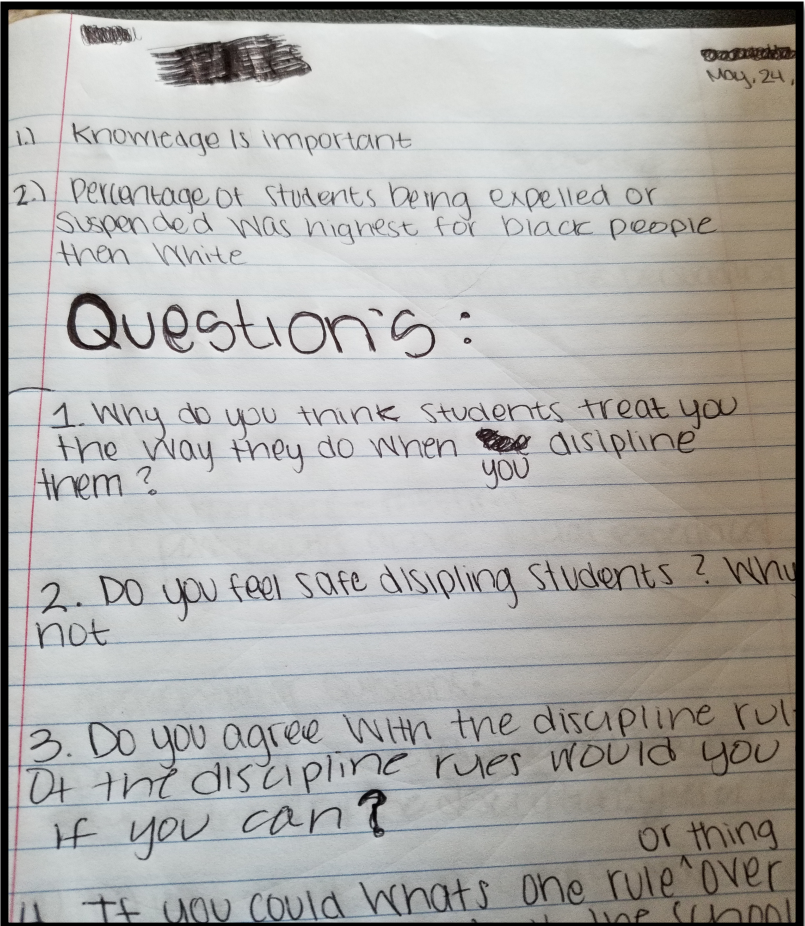 May, 24,
1.) Knowledge Is important
2.) Percentage of students being expelled or
suspended was highest for black people
then White
Question's :
1. Why do you think students treat you
the way they do when disipline
you
them ?
2. Do you feel safe disipling students ? Why
not
3. Do you agree with the discipline rul
Of the discipline rules would you
if you can?
or thing
4 If you could whats one rule ^ over
school